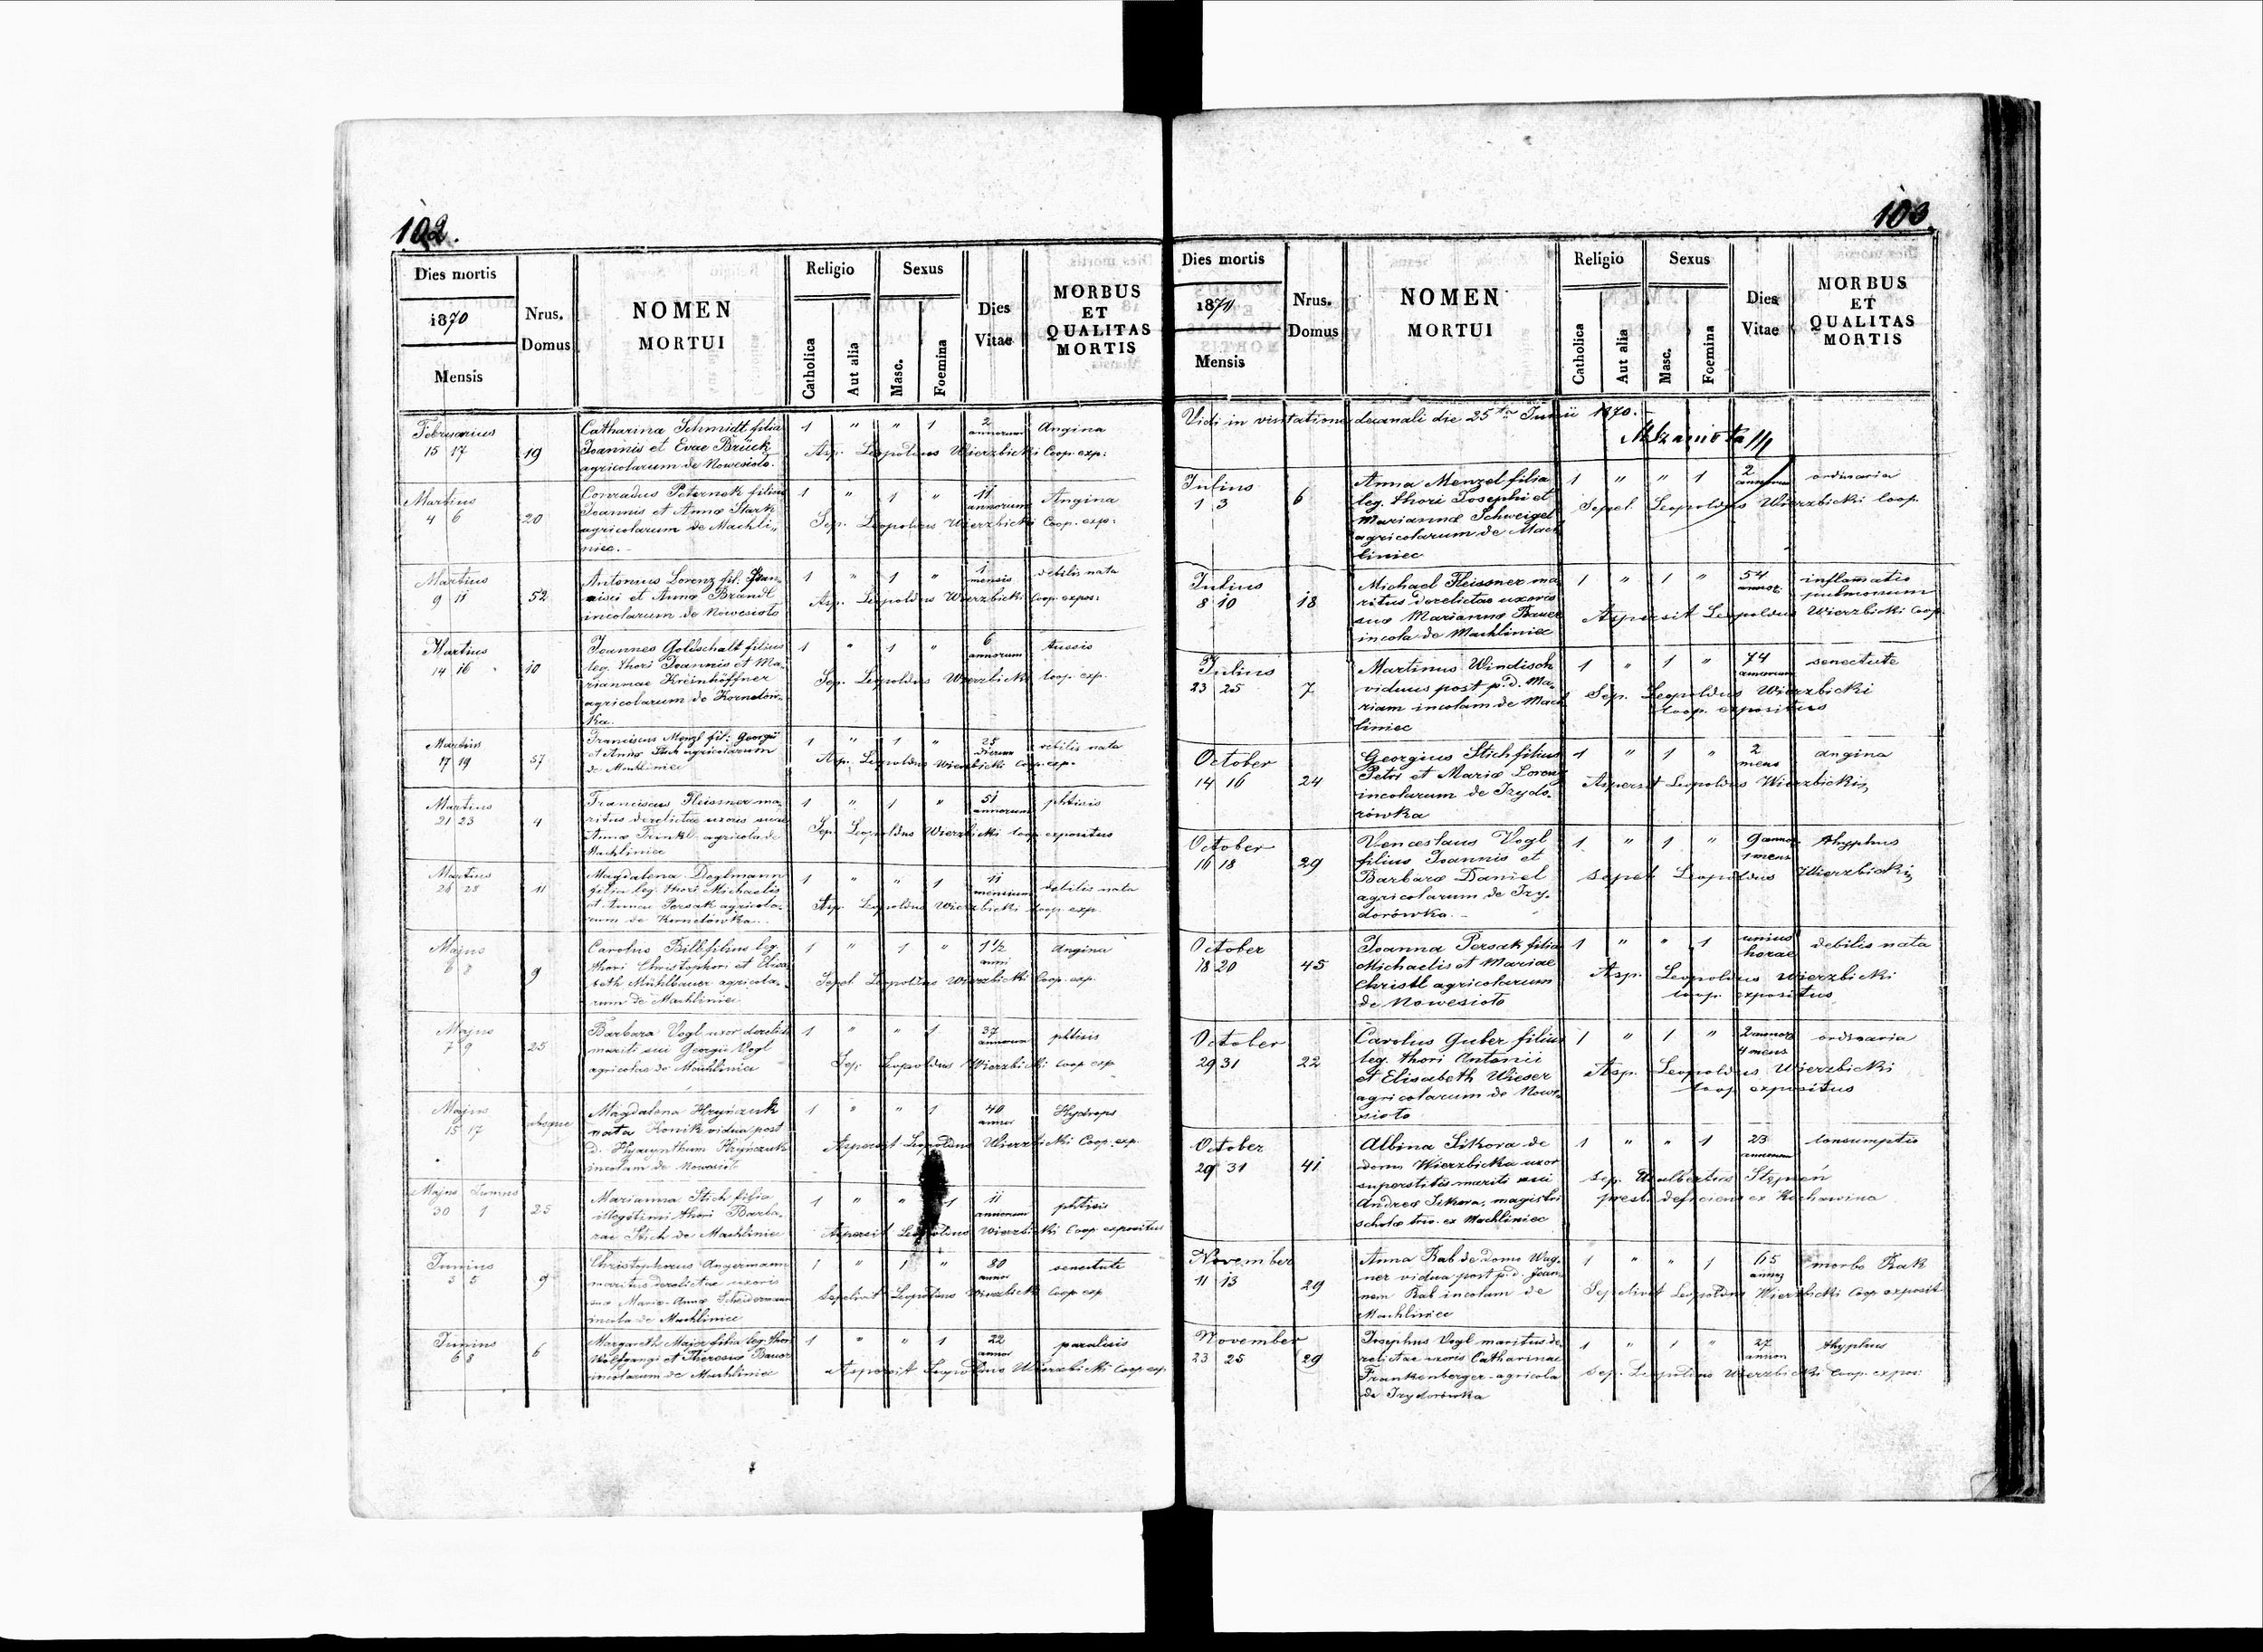 102.
Dies mortis
1870
Mensis
Nrus.
Domus
NOMEN
MORTUI
Religio
Catholica
Aut alia
Sexus
Masc.
Foemina
Dies
Vitae
MORBUS
ET
QUALITAS
MORTIS
Februarius
15 17
19
Catharina Schmidt filia
Joannis et Evae Brück
agricolarum de Nowesioło.
1 " " 1
2
annorum
Angina
Asp. Leopoldus Wierzbicki Coop. exp:
Martius
4 6
20
Conradus Peternek filius
Joannis et Annæ Stark
agricolarum de Machli-
niec.
1 " 1 "
11
annorum
Angina
Sep. Leopoldus Wierzbicki Coop. exp:
Martius
9 11
52
Antonius Lorenz fil.
et Annæ Brandl
incolarum de Nowesioło
1 " 1 "
1
mensis
debilis nata
Asp. Leopoldus Wierzbicki Coop. expos:
Martius
14 16
10
Joannes Goldschalt filius
leg. thori Joannis et Ma-
riannae Kreinhöffner
agricolarum de Kornelów-
ka.
1 " 1 "
6
annorum
tussis
Sep. Leopoldus Wierzbicki Coop. exp.
Martius
17 19
57
Franciscus Menzl fil: Georgii
et Annæ Stich agricolarum
de Machliniec
1 " 1 "
25
dierum
debilis nata
Asp. Leopoldus Wierzbicki Coop. exp.
Martius
21 23
4
Franciscus Fleissner ma-
ritus derelictae uxoris suae
Annæ Trinkl agricola de
Machliniec
1 " 1 "
51
annorum
phtisis
Sep. Leopoldus Wierzbicki Coop expositus
Martius
26 28
11
Magdalena Deglmann
filia leg. thori Michaelis
et Annae Persak agricola-
rum de Kornelówka.
1 " " 1
11
mensium
debilis nata
Asp. Leopoldus Wierzbicki Coop. exp.
Majus
6 8
9
Carolus Bill filius leg.
thori Christophori et Elisa-
beth Mühlbauer agricola-
rum de Machliniec
1 " 1 "
1 1/2
anni
Angina
Sepel Leopoldus Wierzbicki Coop. exp.
Majus
7 9
25
Barbara Vogl uxor derelicti
mariti sui Georgii Vogl
agricolae de Machliniec
1 " " 1
37
annorum
phtisis
Sep. Leopoldus Wierzbicki Coop exp
Majus
15 17
absque
Magdalena Hryńczuk
nata Konik vidua post
d. Hyacynthum Hryńczuk
incolam de Nowesioło
1 " " 1
40
annor
Hydrops
Aspersit Leopoldus Wierzbicki Coop. exp.
Majus Junius
30 1
25
Marianna Stich filia
illegitimi thori Barba-
rae Stich de Machliniec
1 " " 1
11
annorum
phtisis
Aspersit Leopoldus Wierzbicki Coop. expositus
Junius
3 5
9
Christophorus Angermann
maritus derelictae uxoris
suæ Mariæ-Annæ
incola de Machliniec
1 " 1 "
80
annor
senectute
Sepelivit Leopoldus Wierzbicki Coop exp
Junius
6 8
6
Margareth Major filia leg. thori
Wolfgangi et Theresiæ Bauer
incolarum de Machliniec
1 " " 1
22
annor
paralisis
Aspersit Leopoldus Wierzbicki Coop exp.
103
Dies mortis
1870/1
Mensis
Nrus.
Domus
NOMEN
MORTUI
Religio
Catholica
Aut alia
Sexus
Masc.
Foemina
Dies
Vitae
MORBUS
ET
QUALITAS
MORTIS
Vidi in visitatione decanali die 25ta Junii 1870.
Julius
1 3
6
Anna Menzel filia
leg. thori Josephi et
Mariannæ Schweigel
agricolarum de Mach
liniec
1 " " 1
2
annorum
ordinaria
Sepel. Leopoldus Wierzbicki Coop.
Julius
8 10
18
Michael Fleissner ma-
ritus derelictae uxoris
suæ Mariannæ Bauer
incola de Machliniec
1 " 1 "
54
annor.
inflamatio
pulmonum
Aspersit Leopoldus Wierzbicki Coop
Julius
23 25
7
Martinus Windisch
viduus post p. d. Ma-
riam incolam de Mach
liniec
1 " 1 "
74
annorum
senectute
Sep. Leopoldus Wierzbicki
Coop. expositus
October
14 16
24
Georgius Stich filius
Petri et Mariæ Lorenz
incolarum de Izydo-
rówka
1 " 1 "
2
mens
angina
Aspersit Leopoldus Wierzbicki
October
16 18
29
Venceslaus Vogl
filius Joannis et
Barbaræ Daniel
agricolarum de Izy-
dorówka.
1 " 1 "
9 annor
1 mens
thyphus
Sepel Leopoldus Wierzbicki
October
18 20
45
Joanna Persak filia
Michaelis et Mariae
Christl agricolarum
de Nowesioło
1 " " 1
unius
horae
debilis nata
Asp. Leopoldus Wierzbicki
Coop. expositus
October
29 31
22
Carolus Guber filius
leg. thori Antonii
et Elisabeth Wieser
agricolarum de Nowe-
sioło
1 " 1 "
2 annor
4 mens
ordinaria
Asp. Leopoldus Wierzbicki
Coop expositus
October
29 31
41
Albina Sikora de
domo Wierzbicka uxor
superstitis mariti sui
Andreæ Sikora, magistri
scholæ triv. ex Machliniec
1 " " 1
23
annorum
consumptio
Sep. Adalbertus Stempień
presb. deficiens ex Kochawina
November
11 13
29
Anna Rab de domo Wag-
ner vidua post p. d. Joan-
nem Rab incolam de
Machliniec
1 " " 1
65
annor
morbo Rak
Sepelivit Leopoldus Wierzbicki Coop exposit
November
23 25
29
Josephus Vogl maritus de-
relictae uxoris Catharinae
Frankenberger agricola
de Izydorówka
1 " 1 "
27
annor
thyphus
Sep. Leopoldus Wierzbicki Coop. expos: